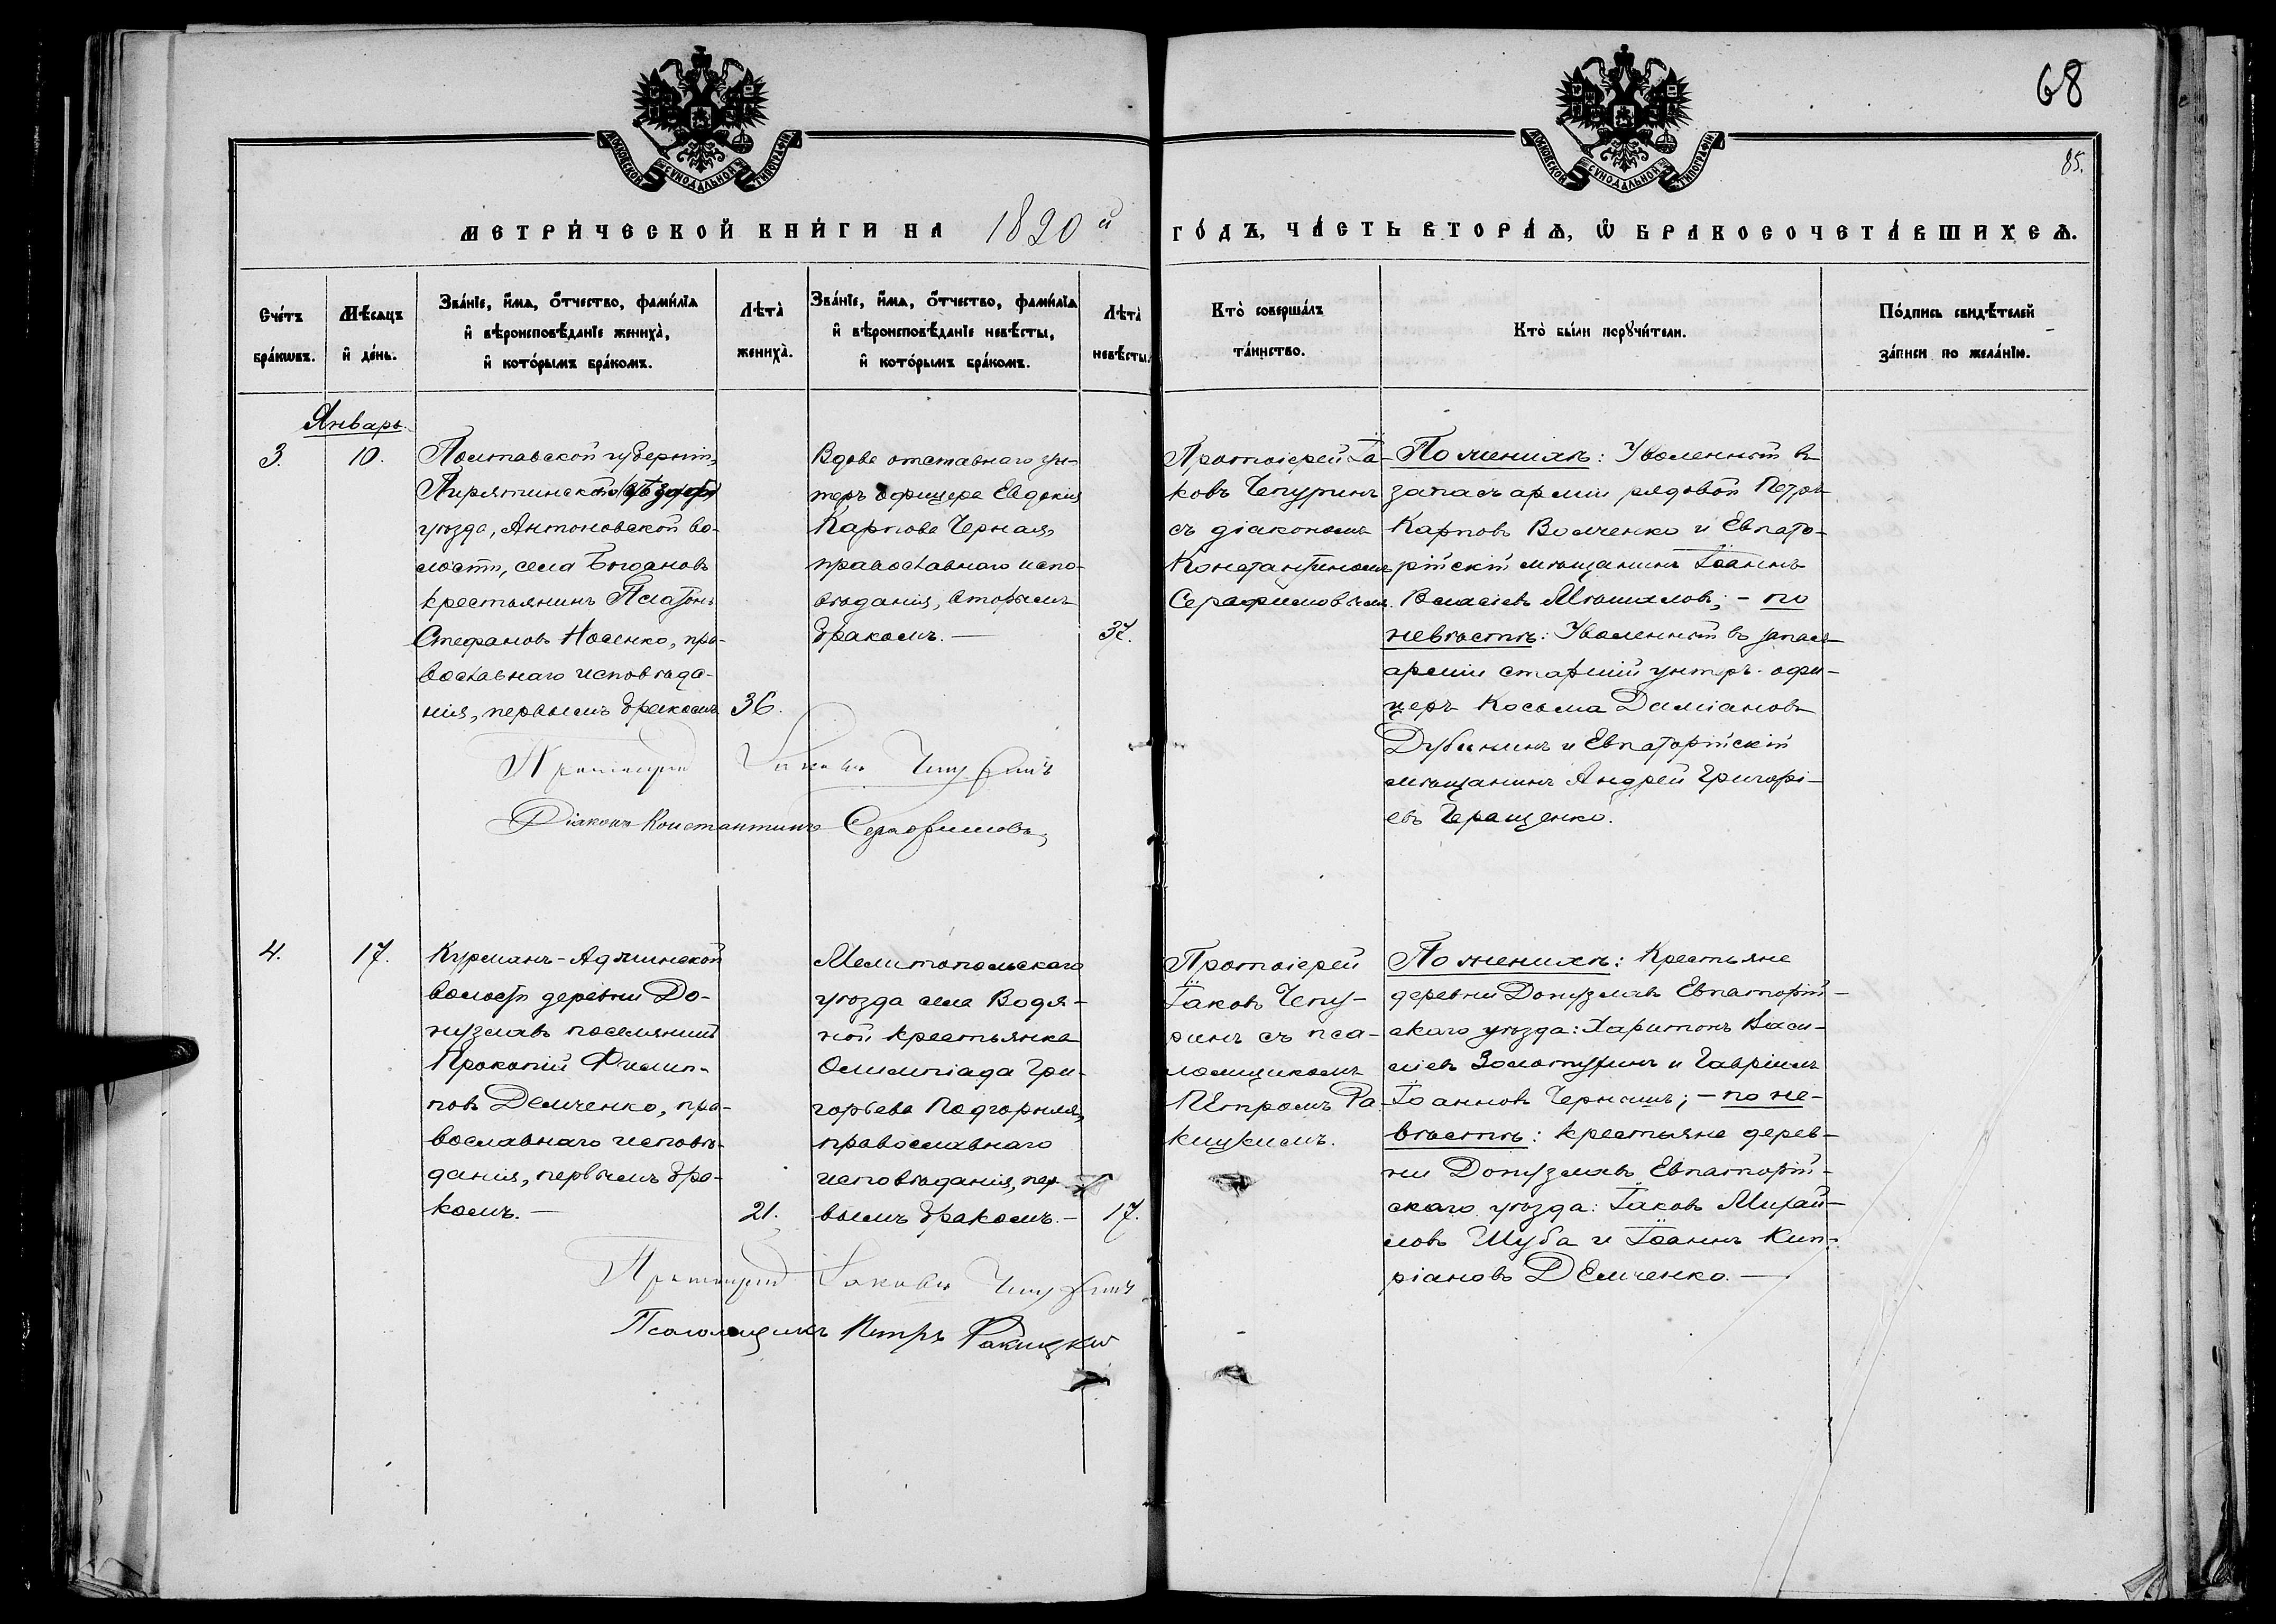 68
МОСКОВСКОЙ СѴНОДАЛЬНОЙ ТИПОГРАФІИ
МОСКОВСКОЙ СѴНОДАЛЬНОЙ ТИПОГРАФІИ
85.
МЕТРИ́ЧЕСКОЙ КНИ́ГИ НА 1890й ГО́ДЪ, ЧА́СТЬ ВТОРА́Ѧ, Ѡ БРАКОСОЧЕТА́ВШИХСѦ.
Сче́тъ бра́кѡвъ.
Мѣ́сѧцъ и҆ де́нь.
Зва́нїе, и҆́мѧ, ѻ҆́тчество, фами́лїѧ
и҆ вѣроисповѣ́данїе жениха̀,
и҆ кото́рымъ бра́комъ.
Лѣта̀ жениха̀.
Зва́нїе, и҆́мѧ, ѻ҆́тчество, фами́лїѧ
и҆ вѣроисповѣ́данїе невѣ́сты,
и҆ кото́рымъ бра́комъ.
Лѣта̀ невѣ́сты.
Кто̀ соверша́лъ
та́инство.
Кто̀ бы́ли порꙋчи́тели.
По́дпись свидѣ́телей
за́писи по жела́нїю.
Январь.
3.
10.
Полтавской губерніи,
Пирятинского
уѣзда, Антоновской во-
лости, села Богдановъ
крестьянинъ Платонъ
Стефановъ Носенко, пра-
вославнаго исповѣда-
нія, первымъ бракомъ
36.
Вдова отставнаго ун-
теръ офицера Евдокія
Карпова Черная,
православнаго испо-
вѣданія, вторымъ
бракомъ. —
37.
Протоіерей Іа-
ковъ Чепуринъ
съ діакономъ
Константиномъ
Серафимовымъ.
По женихѣ: Уволенный въ
запасъ арміи рядовой Петръ
Карповъ Волченко и Евпато-
рійскій мѣщанинъ Іоаннъ
Власіевъ ; — по
невѣстѣ: Уволенный въ запасъ
арміи старшій унтеръ-офи-
церъ Косьма Даміановъ
Дубининъ и Евпаторійскій
мѣщанинъ Андрей Григорі-
евъ Геращенко.
Протоіерей Іаковъ Чепуринъ
Діаконъ Константинъ Серафимовъ,
4.
17.
Курманъ-Аджинской
волости деревни До-
нузлавъ поселянинъ
Прокопій Филип-
повъ Демченко, пра-
вославнаго исповѣ-
данія, первымъ бра-
комъ. —
21.
Мелитопольскаго
уѣзда села Водя-
ной крестьянка
Олимпіада Гри-
горьева Подгорная,
православнаго
исповѣданія, пер-
вымъ бракомъ. —
17.
Протоіерей
Іаковъ Чепу-
ринъ съ пса-
ломщикомъ
Петромъ Ра-
кицкимъ.
По женихѣ: Крестьяне
деревни Донузлавъ Евпаторій-
скаго уѣзда: Харитонъ Васи-
ліевъ Золотухинъ и Гавріилъ
Іоанновъ Чернышъ; — по не-
вѣстѣ: крестьяне дерев-
ни Донузлавъ Евпаторій-
скаго уѣзда: Іаковъ Михай-
ловъ Шуба и Іоаннъ Кип-
ріановъ Демченко. —
Протоіерей Іаковъ Чепуринъ
Псаломщикъ Петръ Ракицкій